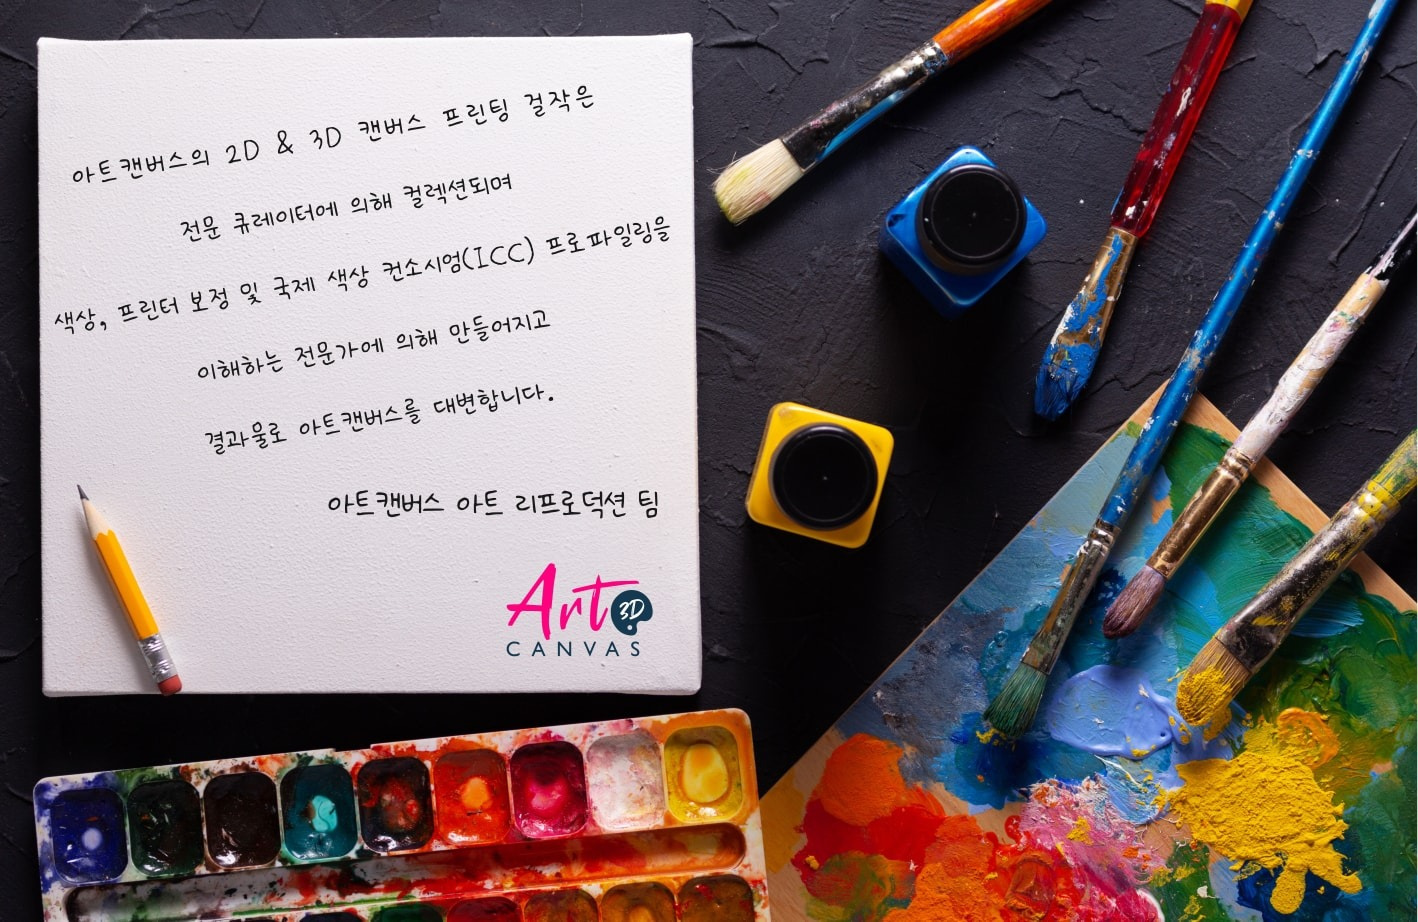 아트캔버스의 2D & 3D 캔버스 프린팅 걸작은
전문 큐레이터에 의해 컬렉션되며
색상, 프린터 보정 및 국제 색상 컨소시엄(ICC) 프로파일링을
이해하는 전문가에 의해 만들어지고
결과물로 아트캔버스를 대변합니다.
아트캔버스 아트 리프로덕션 팀
Art 3D
CANVAS